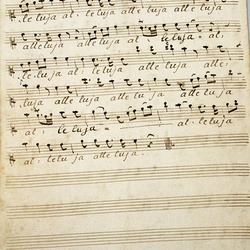 le luja al: le luja alle luja alle luja
alleluja alle luja al: le luja. al:
le: luja al: le luja alle luja alle:
luja alle luja alle lu ja alle luja
al: le luja. al: leluja
al: lelu ja alle luja.